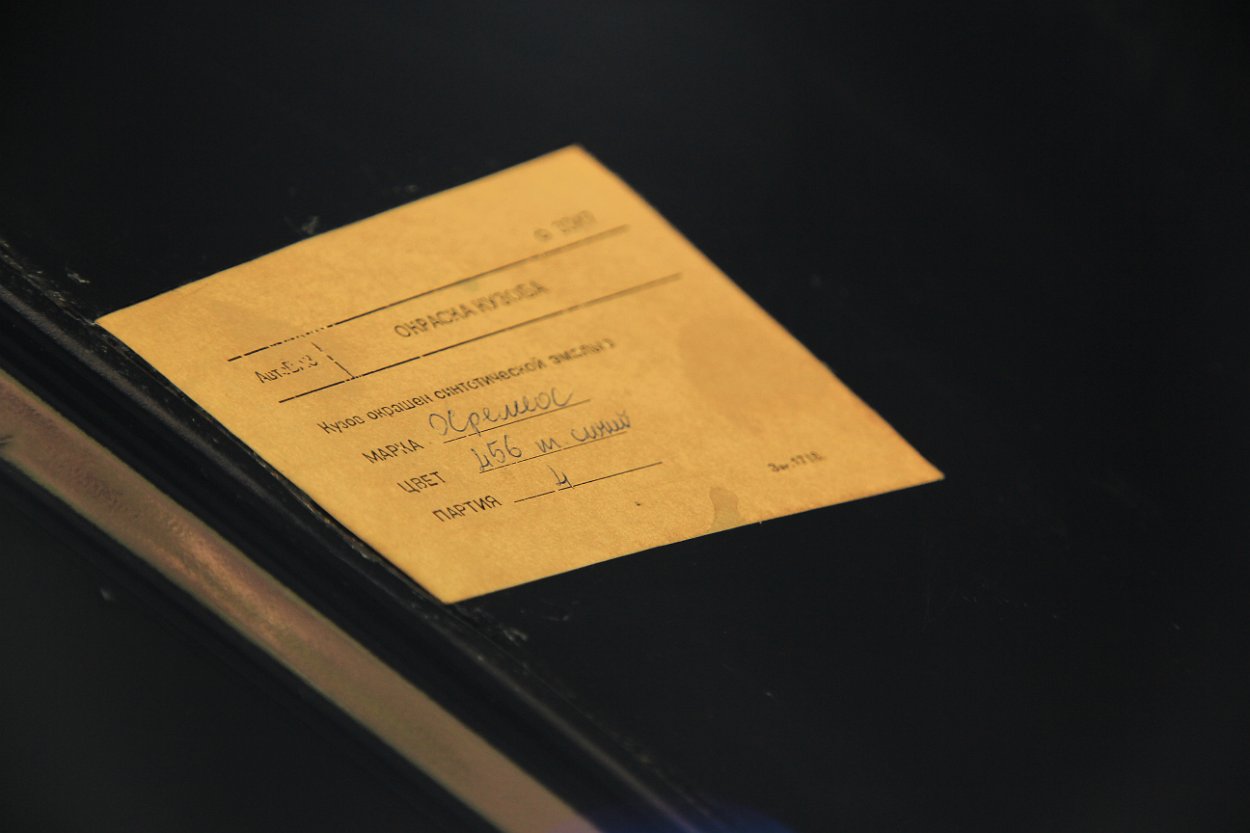 ОКРАСКА КУЗОВА
АвтоВАЗ
Кузов окрашен синтетической эмалью
МАРКА
ЦВЕТ 456 т синий
ПАРТИЯ 4